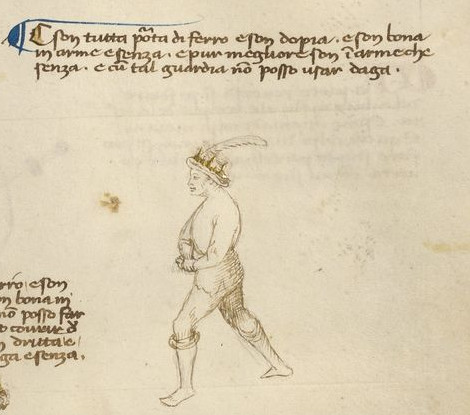 E son tutta porta di ferro e son dopia. e son bona
in arme e senza. e pur megliore son in arme che
senza. e cum tal guardia non posso usar daga.
rro e son
n bona in
no posso far
o covrir d
n dritta e
ga e senza.